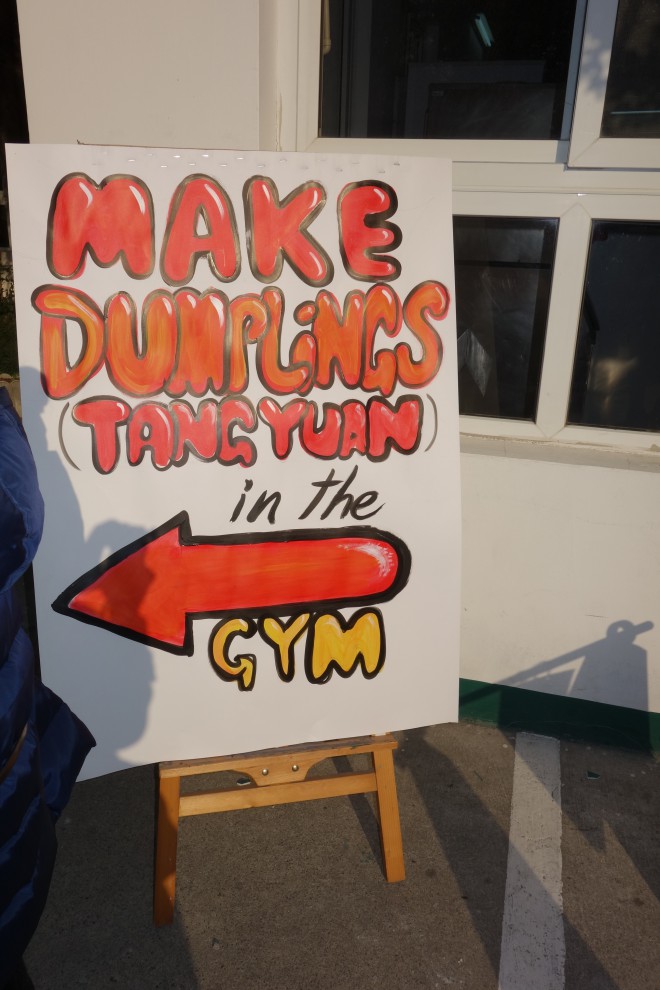 MAKE
DUMPLiNGS
(TANGYUAN)
in the
GYM